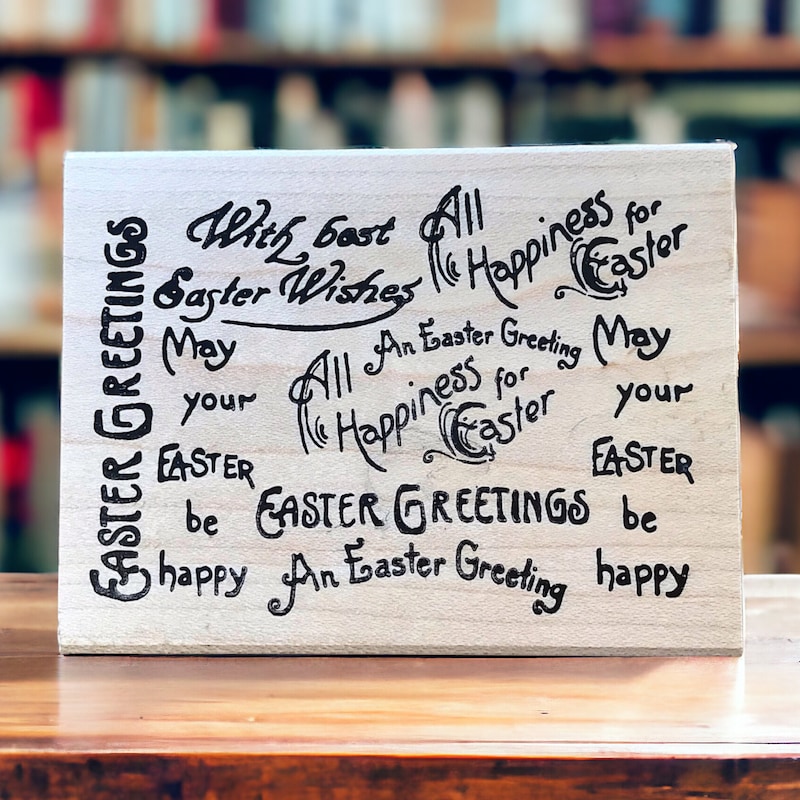 EASTER GREETINGS
With best
Easter Wishes
All
Happiness for
Easter
May
your
EASTER
be
happy
An Easter Greeting
All
Happiness for
Easter
EASTER GREETINGS
An Easter Greeting
May
your
EASTER
be
happy